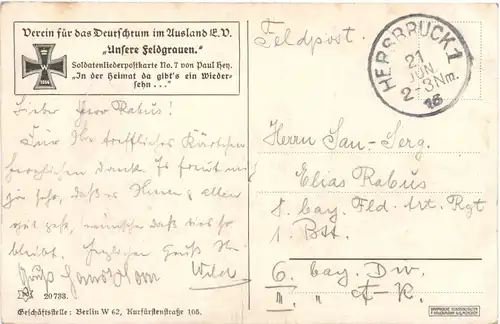 Verein für das Deutschtum im Ausland (E.V.
„Unsere Feldgrauen.“
Soldatenliederpostkarte No. 7 von Paul Hey.
„In der Heimat da gibt's ein Wieder-
sehn . . .“
1914
Feldpost.
HERSBRUCK 1
21
JUN.
2-3 Nm.
16
Lieber Herr Rabus!
Für Ihr treffliches Kärtchen
herzlichen Dank. Es freut mich
ja sehr, daß es Ihnen allen
gut geht, wünsche daß dies so
bleibt. Herzlichen Gruß Ihr
Wild
Gruß
Herrn San.-Serg.
Elias Rabus
8. bay. Feld. Art. Rgt
1. Btt.
6. bay. Div.
III. " A-K.
20733.
Geschäftsstelle: Berlin W 62, Kurfürstenstraße 105.